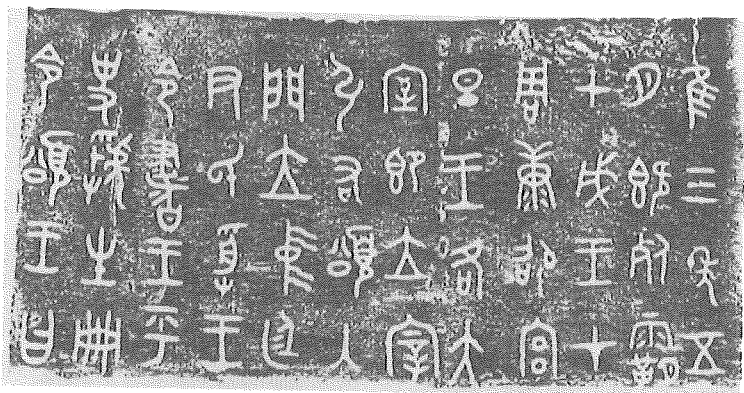 隹三年五
月既死霸
甲戌王才
周康卲宮
旦王各大
室即立宰
引右頌入
門立中廷
尹氏受王
令書王乎
史虢生冊
令頌王曰